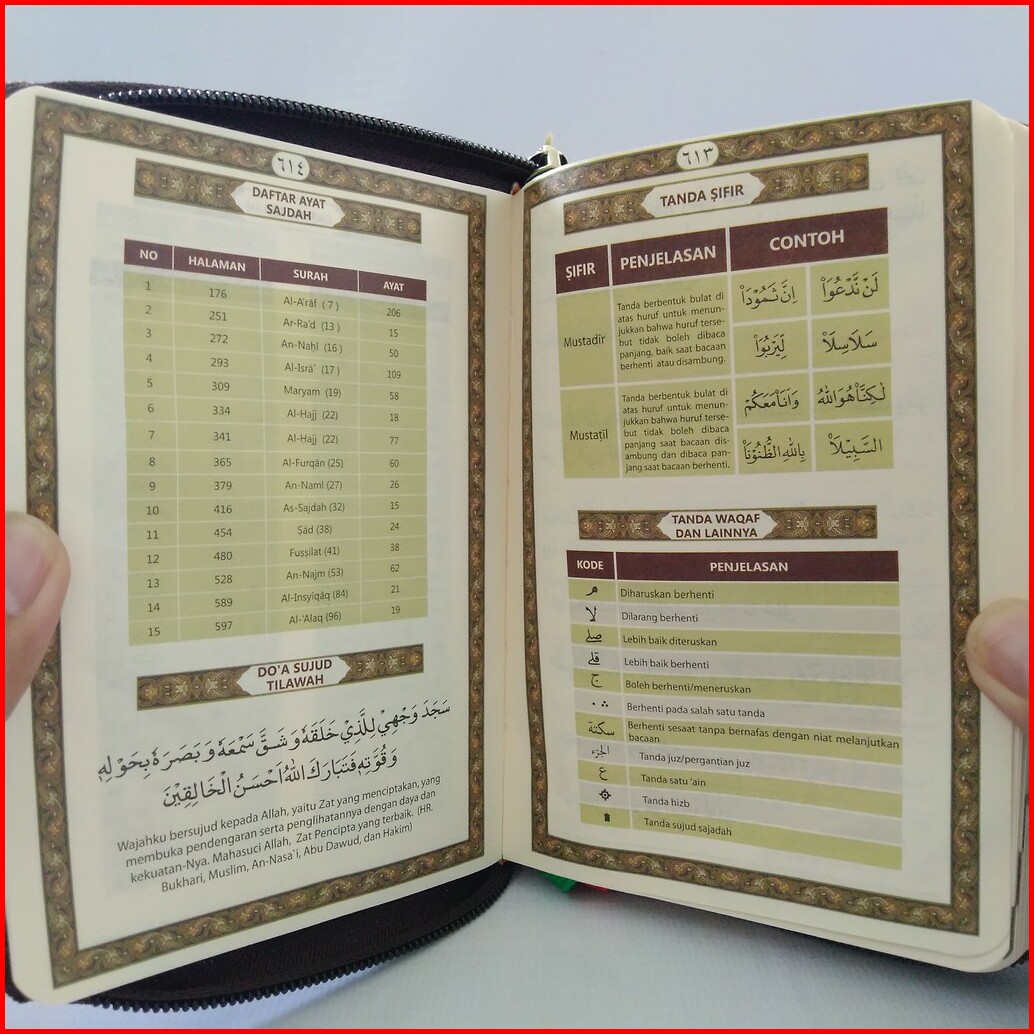 ٦١٤
DAFTAR AYAT
SAJDAH
NO HALAMAN SURAH AYAT
1 176 Al-A'rāf ( 7 ) 206
2 251 Ar-Ra'd (13 ) 15
3 272 An-Naḥl (16 ) 50
4 293 Al-Isrā` (17 ) 109
5 309 Maryam (19) 58
6 334 Al-Ḥajj (22) 18
7 341 Al-Ḥajj (22) 77
8 365 Al-Furqān (25) 60
9 379 An-Naml (27) 26
10 416 As-Sajdah (32) 15
11 454 Ṣād (38) 24
12 480 Fuṣṣilat (41) 38
13 528 An-Najm (53) 62
14 589 Al-Insyiqāq (84) 21
15 597 Al-'Alaq (96) 19
DO'A SUJUD
TILAWAH
سَجَدَ وَجْهِيْ لِلَّذِيْ خَلَقَهُ وَشَقَّ سَمْعَهُ وَبَصَرَهُ بِحَوْلِهِ
وَقُوَّتِهِ فَتَبَارَكَ اللهُ اَحْسَنُ الْخَالِقِيْنَ
Wajahku bersujud kepada Allah, yaitu Zat yang menciptakan, yang
membuka pendengaran serta penglihatannya dengan daya dan
kekuatan-Nya. Mahasuci Allah, Zat Pencipta yang terbaik. (HR.
Bukhari, Muslim, An-Nasa`i, Abu Dawud, dan Hakim)
٦١٣
TANDA ṢIFIR
ṢIFIR PENJELASAN CONTOH
Mustadīr
Tanda berbentuk bulat di
atas huruf untuk menun-
jukkan bahwa huruf terse-
but tidak boleh dibaca
panjang, baik saat bacaan
berhenti atau disambung.
لَنْ نَّدْعُوَا۟ اِنَّ ثَمُوْدَا۟
سَلَاسِلَا۟ لِّيَرْبُوَا۟
Mustaṭil
Tanda berbentuk bulat di
atas huruf untuk menun-
jukkan bahwa huruf terse-
but tidak boleh dibaca
panjang saat bacaan dis-
ambung dan dibaca pan-
jang saat bacaan berhenti.
لٰكِنَّا۠ هُوَ اللهُ وَاَنَا۠ مَعَكُمْ
السَّبِيْلَا۠ بِاللهِ الظُّنُوْنَا۠
TANDA WAQAF
DAN LAINNYA
KODE PENJELASAN
م Diharuskan berhenti
لا Dilarang berhenti
صلے Lebih baik diteruskan
قلے Lebih baik berhenti
ج Boleh berhenti/meneruskan
Berhenti pada salah satu tanda
سكتة Berhenti sesaat tanpa bernafas dengan niat melanjutkan
bacaan
الجزء Tanda juz/pergantian juz
ع Tanda satu 'ain
Tanda hizb
Tanda sujud sajadah